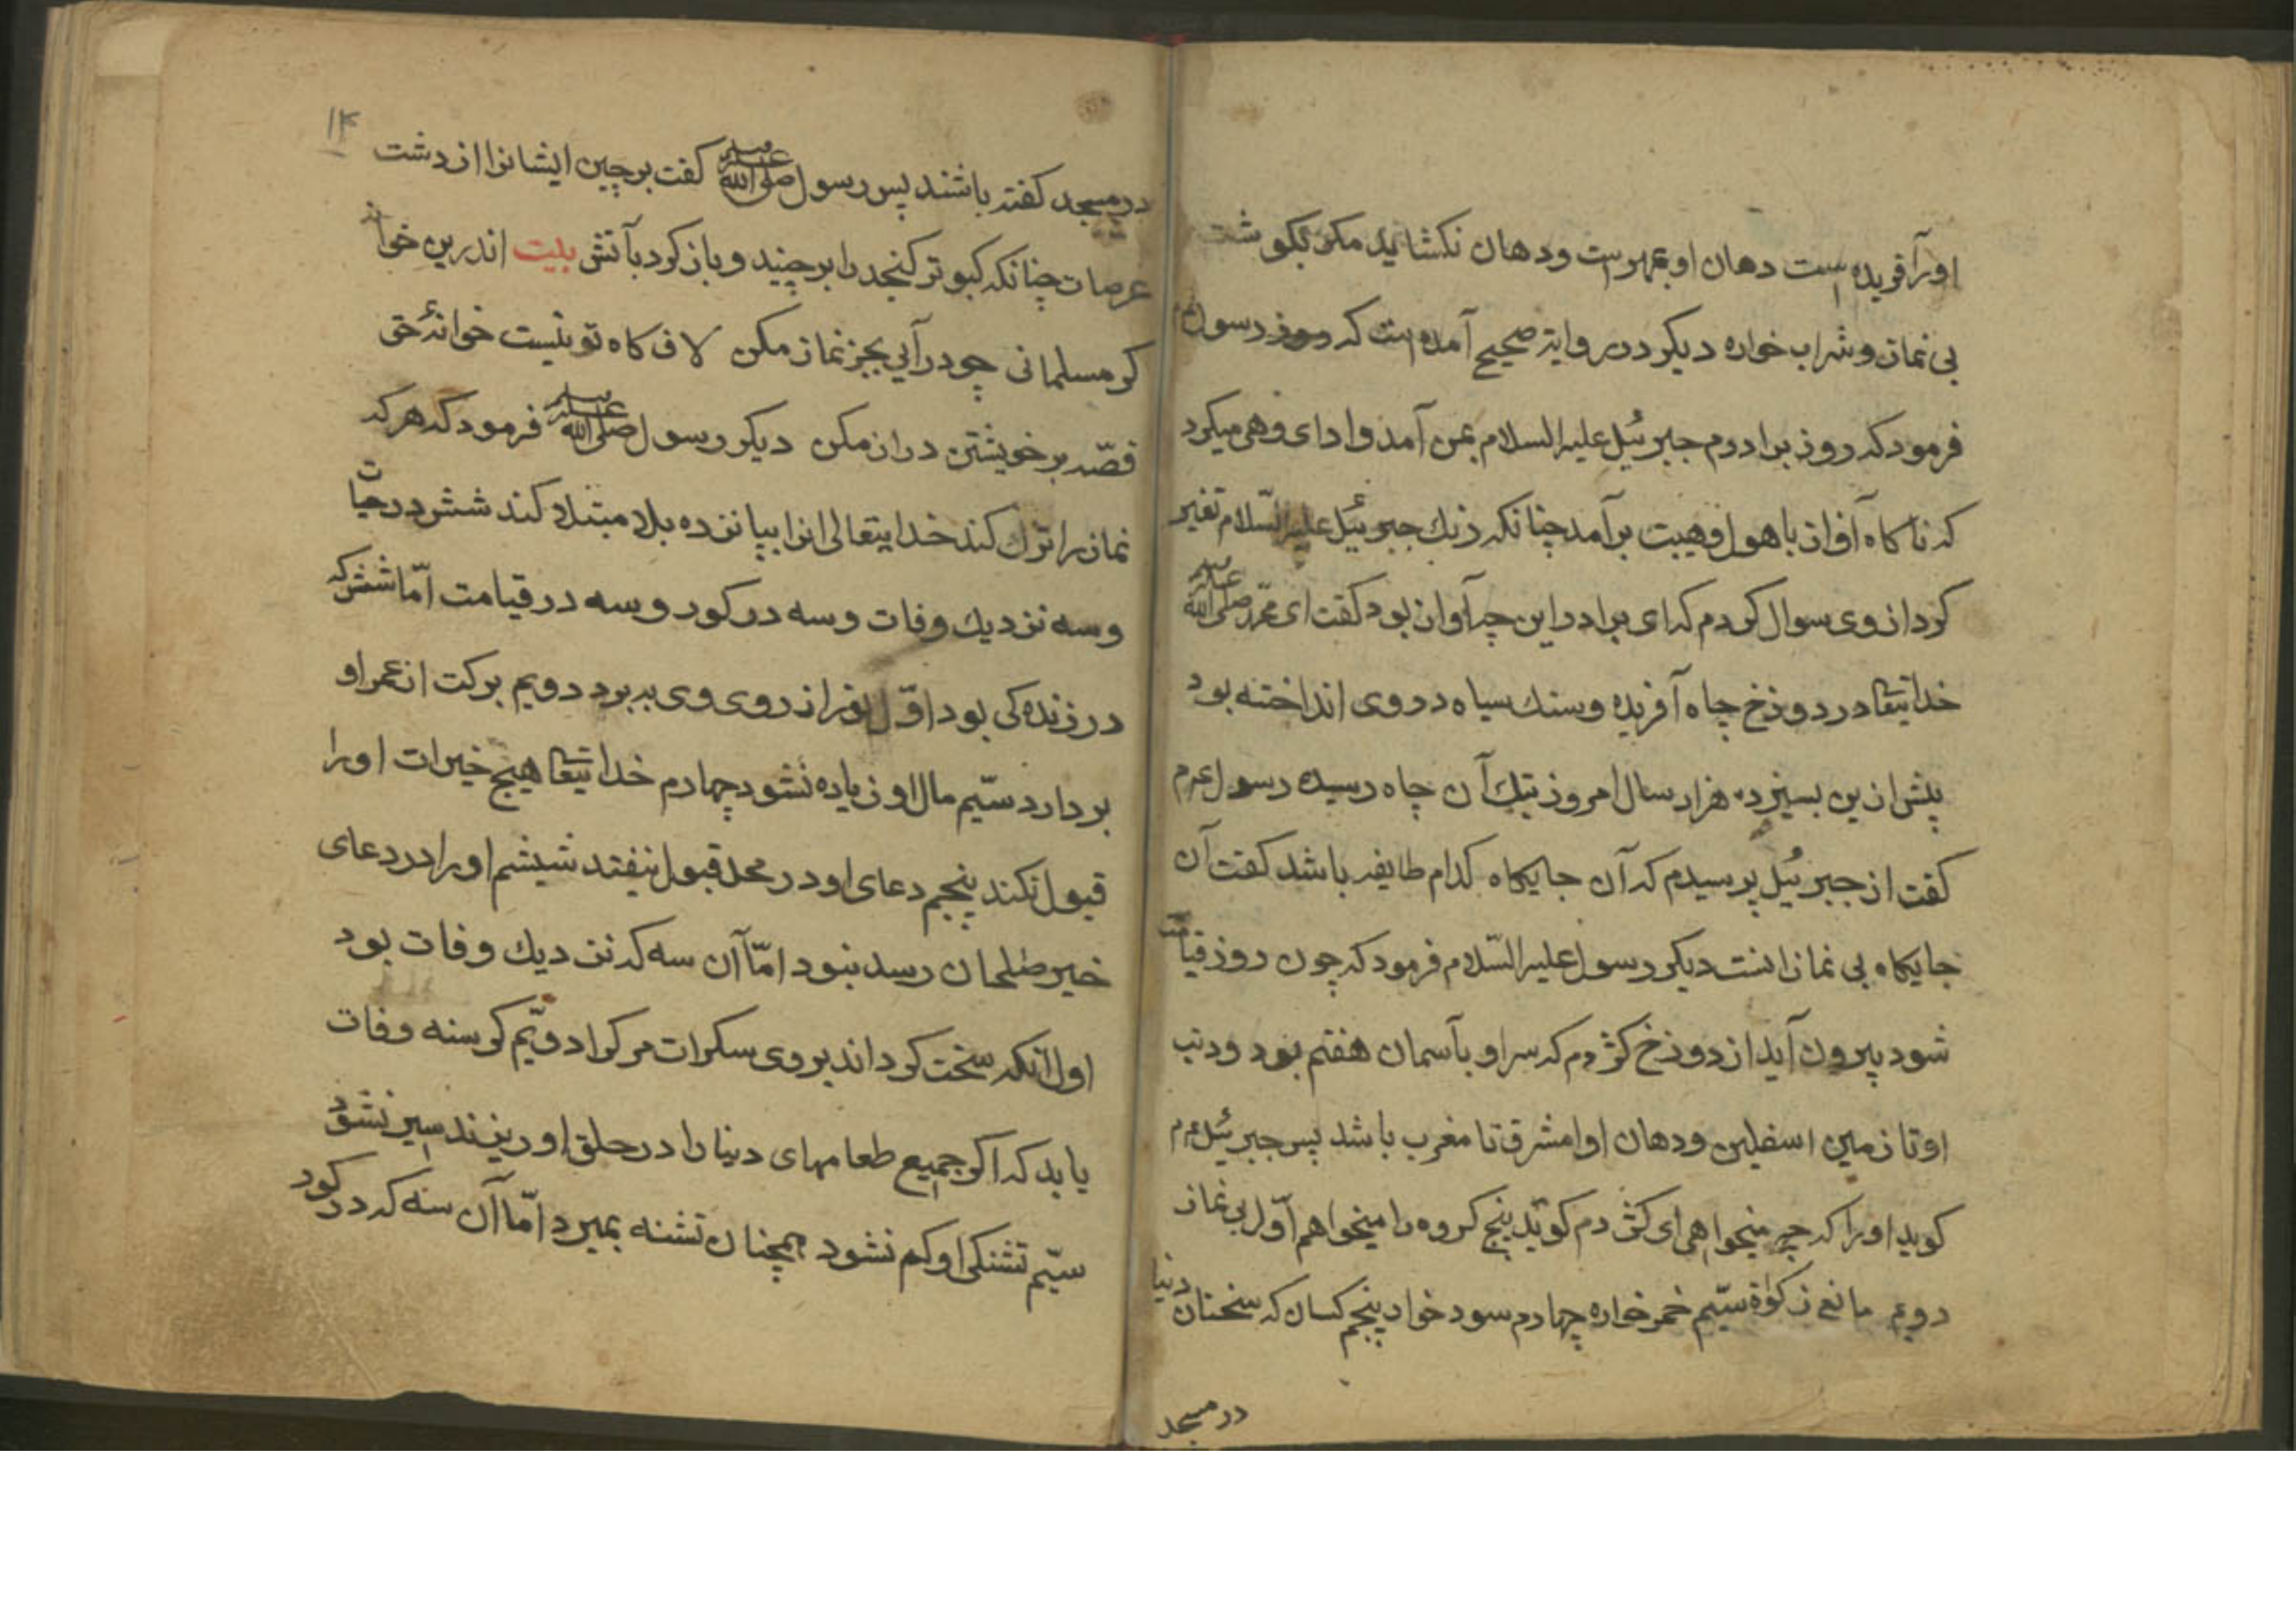 اورا آفریده است دهان او بمهرست ودهان نکشاید مکر بکوشت
بی نماز وشراب خواره دیکر در روایة صحیح آمده است که روزی رسول
فرمود که روز برادرم جبرئیل علیه السلام بمن آمد وادای وهی میکرد
که ناکاه آواز باهول وهیبت برآمد چنانکه رنك جبرئیل علیه السّلام تغیر
کرد از وی سوال کردم که ای برادر این چه آواز بود کفت ای محمّد صلی الله علیه وسلم
خدایتعا در دوزخ چاه آفریده وسنك سیاه در وی انداخته بود
پیش ازین بسیزده هزار سال امروز بتك آن چاه رسیده رسول عم
کفت از جبرئیل پرسیدم که آن جایکاه کدام طایفه باشد کفت آن
جایکاه بی نمازانست دیکر رسول علیه السّلام فرمود که چون روز قیامت
شود بیرون آید از دوزخ کژدم که سر او بآسمان هفتم بود ودنب
او تا زمین اسفلین ودهان او از مشرق تا مغرب باشد پس جبرئیل عم
کوید اورا که چه میخواهی ای کژدم کوید پنج کروه را میخواهم اوّل بی نماز
دویم مانع زکوٰة سیّم خمر خواره چهارم سود خوار پنجم کسان که سخنان دنیا
در مسجد
۱۴
در مسجد کفته باشند پس رسول صلی الله علیه وسلم کفت برچین ایشانرا از دشت
عرصات چنانکه کبوتر کنجد را برچیند وباز کرد بآتش بیت اندرین خوان
کر مسلمانی چو درآیی بجز نماز مکن لاف کاه تو نیست خوانۀ حق
قصّه بر خویشتن دراز مکن دیکر رسول صلی الله علیه وسلم فرمود که هر که
نماز را ترك کند خدایتعالی انرا بپانزده بلا مبتلا کند شش در حیات
وسه نزدیك وفات وسه در کور وسه در قیامت امّا شش که
در زنده کی بود اوّل نور از روی وی ببرد دویم برکت از عمر او
بردارد سیّم مال او زیاده نشود چهارم خدایتعا هیچ خیرات اورا
قبول نکند پنجم دعای او در محل قبول نیفتد شیشم اورا در دعای
خیر صلحان رسد نبود امّا آن سه که نزدیك وفات بود
اول آنکه سخت کرداند بروی سکرات مرك را دویّم کرسنه وفات
یابد که اکر جمیع طعامهای دنیا را در حلق او ریزند سیر نشود
سیّم تشنکی او کم نشود همچنان تشنه بمیرد امّا آن سه که در کور